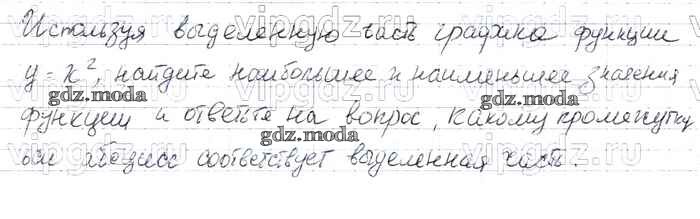 Используя выделенную часть графика функции
y = x², найдите наибольшее и наименьшее значения
gdz.moda gdz.moda
функции и ответьте на вопрос, какому промежутку
gdz.moda
оси абсцисс соответствует выделенная часть.
vipgdz.ru